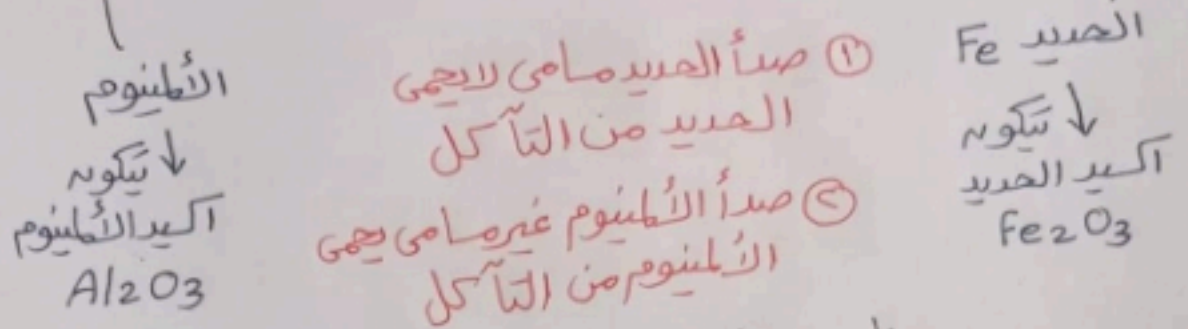 الحديد Fe
↓ تتكون
اكسيد الحديد
Fe2O3
① صدأ الحديد مسامى لا يحمى
الحديد من التآكل
② صدأ الألمنيوم غير مسامى يحمى
الألمنيوم من التآكل
الألمنيوم
↓ تتكون
اكسيد الألمنيوم
Al2O3